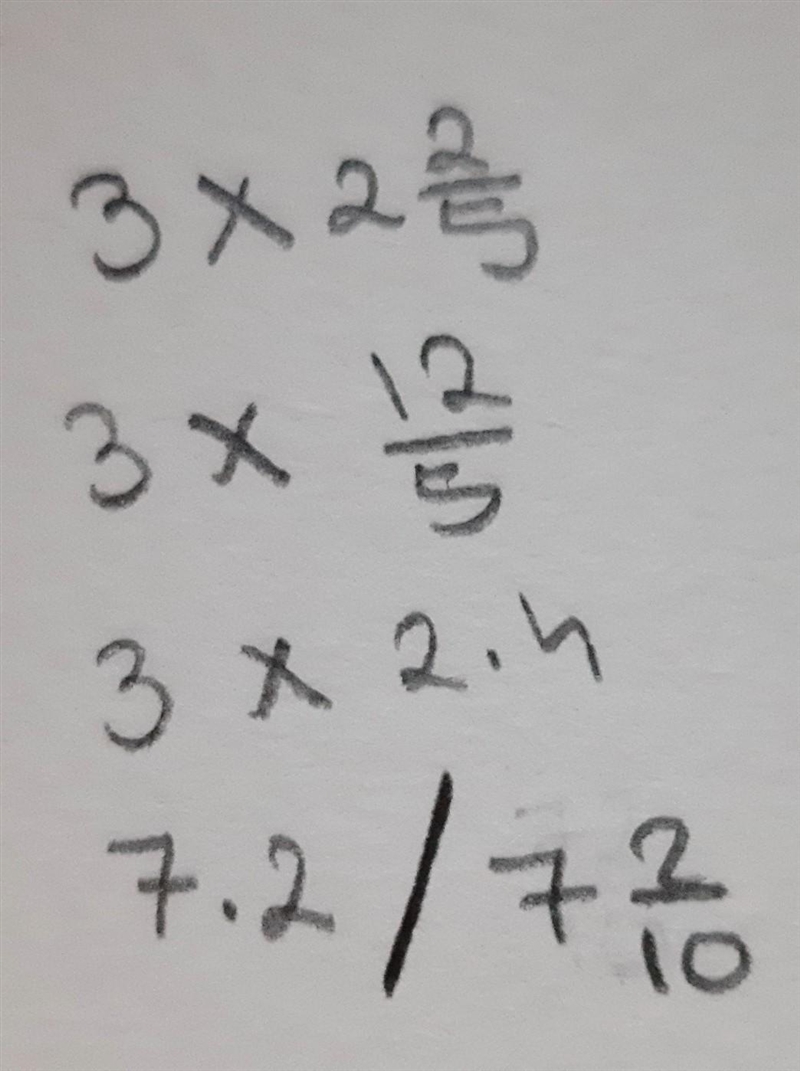 3 × 2 2/5
3 × 12/5
3 × 2.4
7.2 / 7 2/10